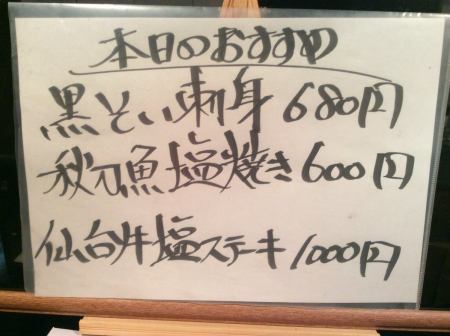 本日のおすすめ
黒そい刺身 680円
秋刀魚塩焼き 600円
仙台牛塩ステーキ 1000円